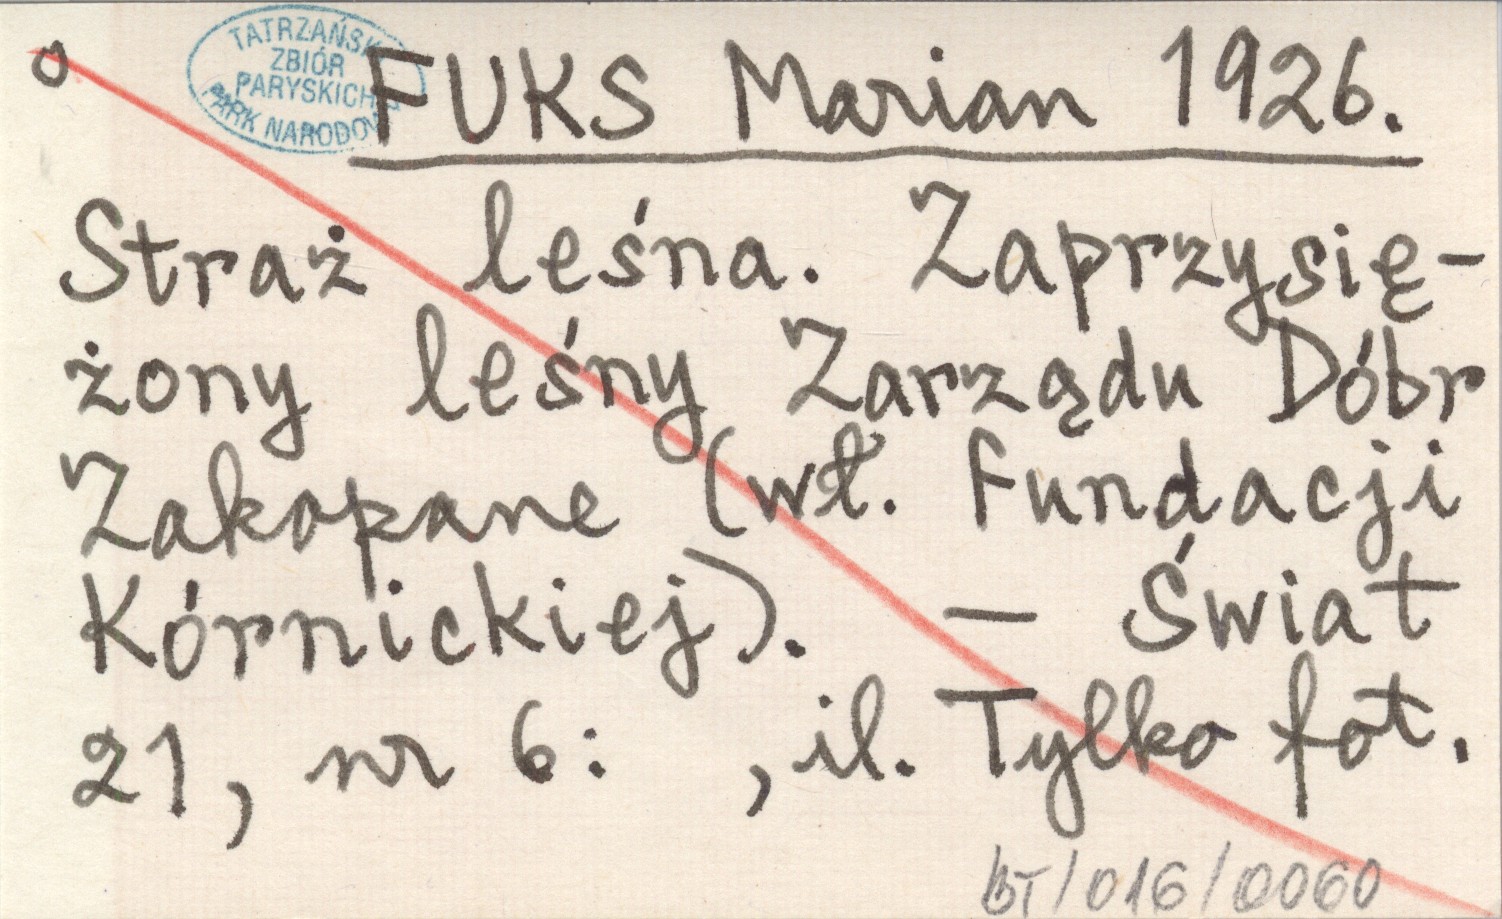 o
TATRZAŃSKI
ZBIÓR
PARYSKICH
PARK NARODOWY
FUKS Marian 1926.
Straż leśna. Zaprzysię-
żony leśny Zarządu Dóbr
Zakopane (wł. Fundacji
Kórnickiej). — Świat
21, nr 6: , il. Tylko fot.
BT/016/0060